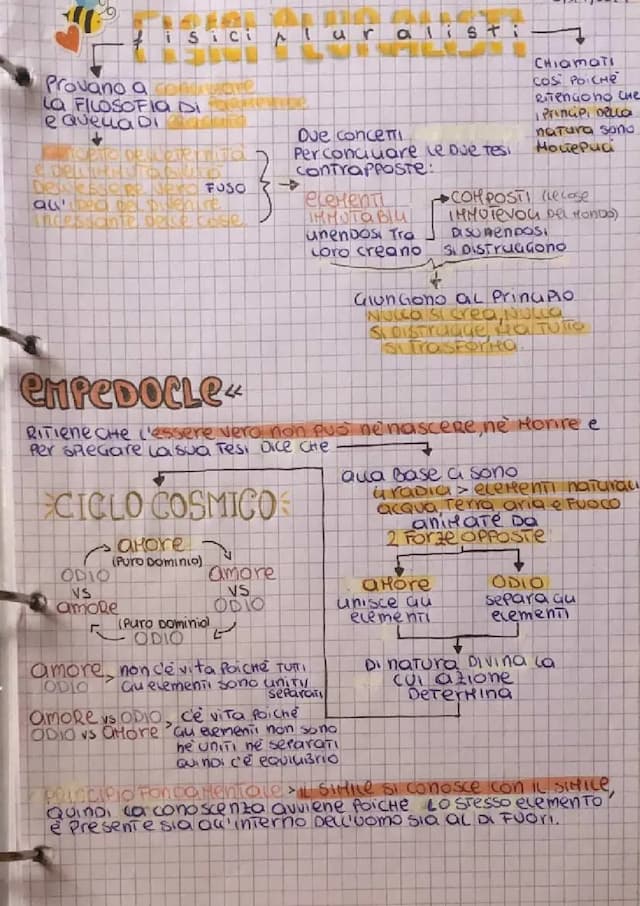 fisici pluralisti
Provano a conciliare
la FILOSOFIA DI Parmenide
e quella DI
CHIAMATI
COSÌ POICHÉ
RITENGONO CHE
i Principi della
natura sono
MOLTEPLICI
DELL'ETERNITÀ
E DELL'IMMUTABILITÀ
DELL'ESSERE VERO FUSO
all'IDEA DEL DIVENIRE
INCESSANTE DELLE COSE
Due concetti
Per conciliare le due tesi
contrapposte:
elementi
IMMUTABILI
unendosi tra
loro creano
COMPOSTI (le cose
IMMUTEVOLI DEL MONDO)
DISUNENDOSI
SI DISTRUGGONO
GIUNGONO AL PRINCIPIO
NULLA SI CREA, NULLA
SI DISTRUGGE, MA TUTTO
SI TRASFORMA.
EMPEDOCLE «
RITIENE CHE L'essere vero non può né nascere, né morire e
Per spiegare la sua tesi DICE CHE
alla Base ci sono
4 radici > elementi naturali
acqua terra aria e fuoco
animate da
2 Forze OPPOSTE
aMore
unisce gli
elementi
ODIO
separa gli
elementi
DI natura DIVINA la
cui azione
Determina
CICLO COSMICO
aMore
(Puro Dominio)
ODIO
VS
aMore
amore
VS
ODIO
(Puro Dominio)
ODIO
amore
ODIO > non c'è vita poiché tutti
gli elementi sono uniti/
separati
AMORE vs ODIO
ODIO vs aMore > c'è vita poiché
gli elementi non sono
né uniti né separati
quindi c'è equilibrio
PRINCIPIO FONDAMENTALE > IL SIMILE SI CONOSCE CON IL SIMILE,
quindi la conoscenza avviene poiché lo stesso elemento
è presente sia all'interno dell'uomo sia al di fuori.